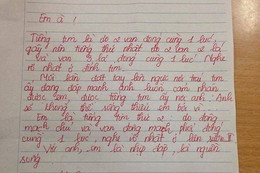 Em à !
Tiếng tim là do 2 van đóng cùng 1 lúc,
gây nên tiếng thứ nhất do 2 van 2 lá
và van 3 lá đóng cùng 1 lúc. Nghe
rõ nhất ở đỉnh tim.
Mỗi lần đặt tay lên ngực nơi trái tim
ấy đang đập mạnh anh luôn cảm nhận
được em, được từng tim ấy nơi anh. Anh sẽ
không thể sống thiếu em bởi vì:
Em là tiếng tim thứ 2: do đóng
mạch chủ và van động mạch phổi đóng
cùng 1 lúc, nghe rõ nhất ở liên sườn II
Với anh, em là nhịp đập, là nguồn
sống